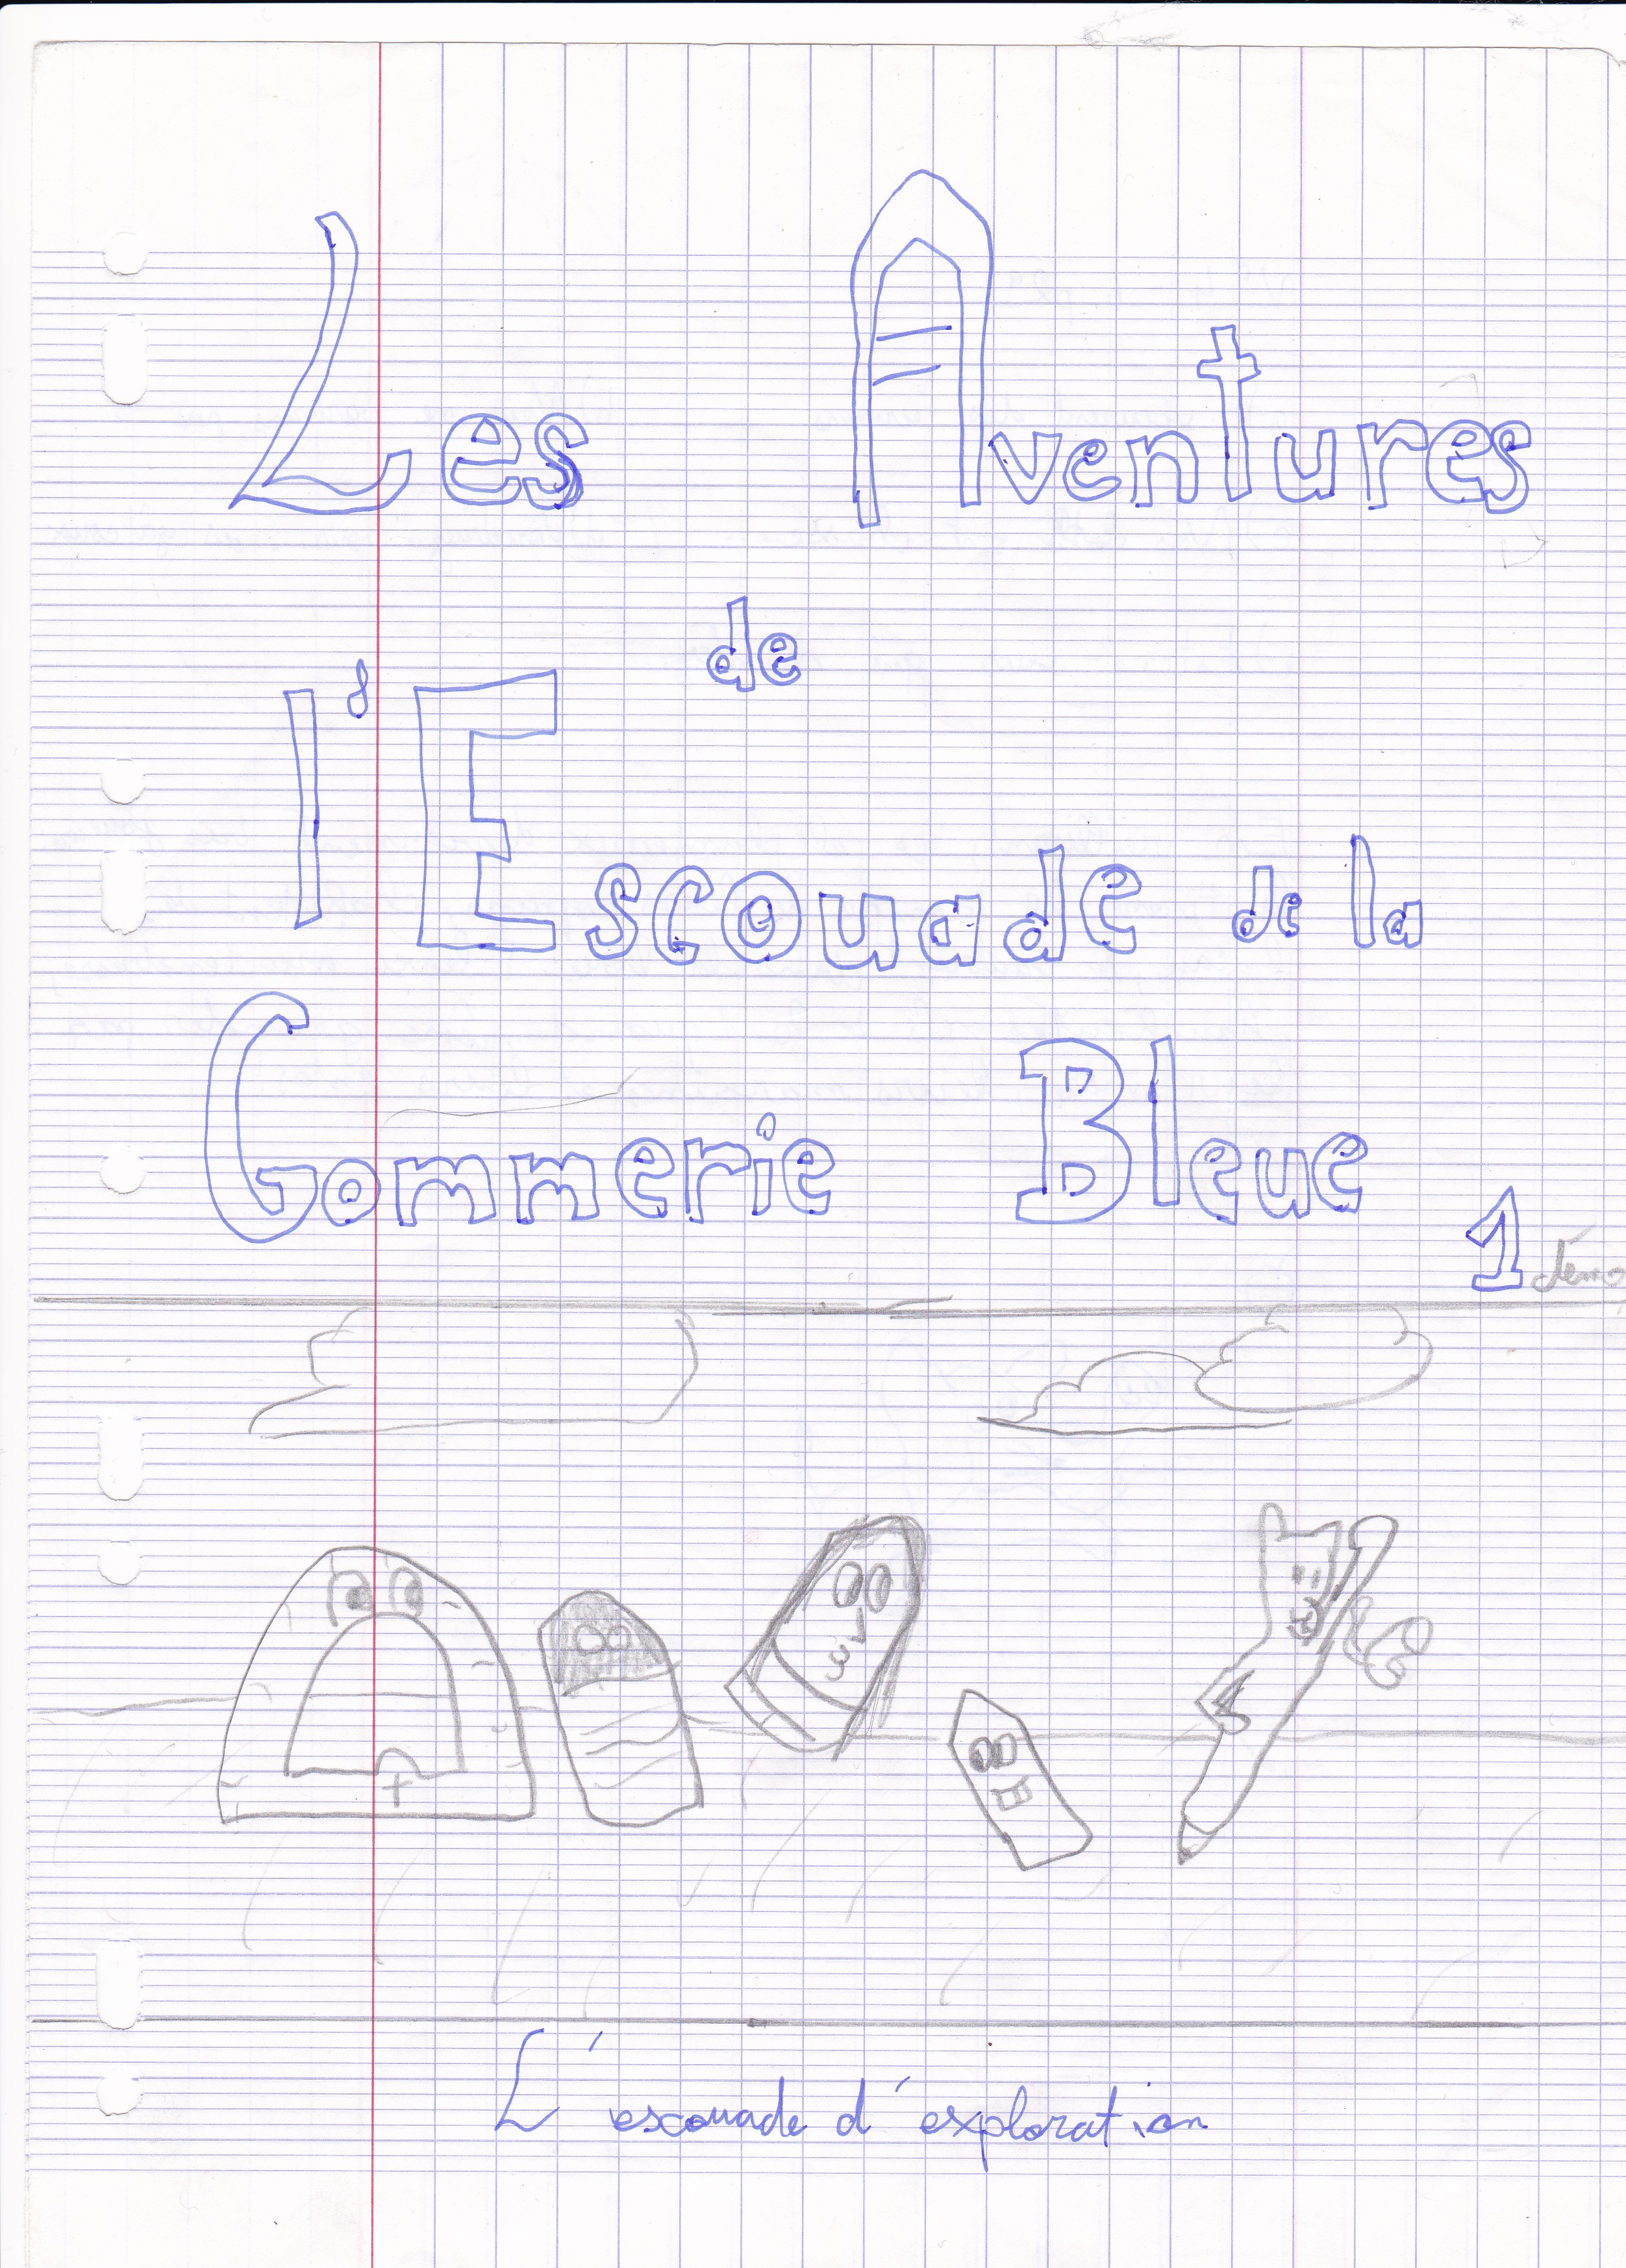 Les Aventures
de
l'Escouade de la
Gommerie Bleue
1 démo
L'escouade d'exploration